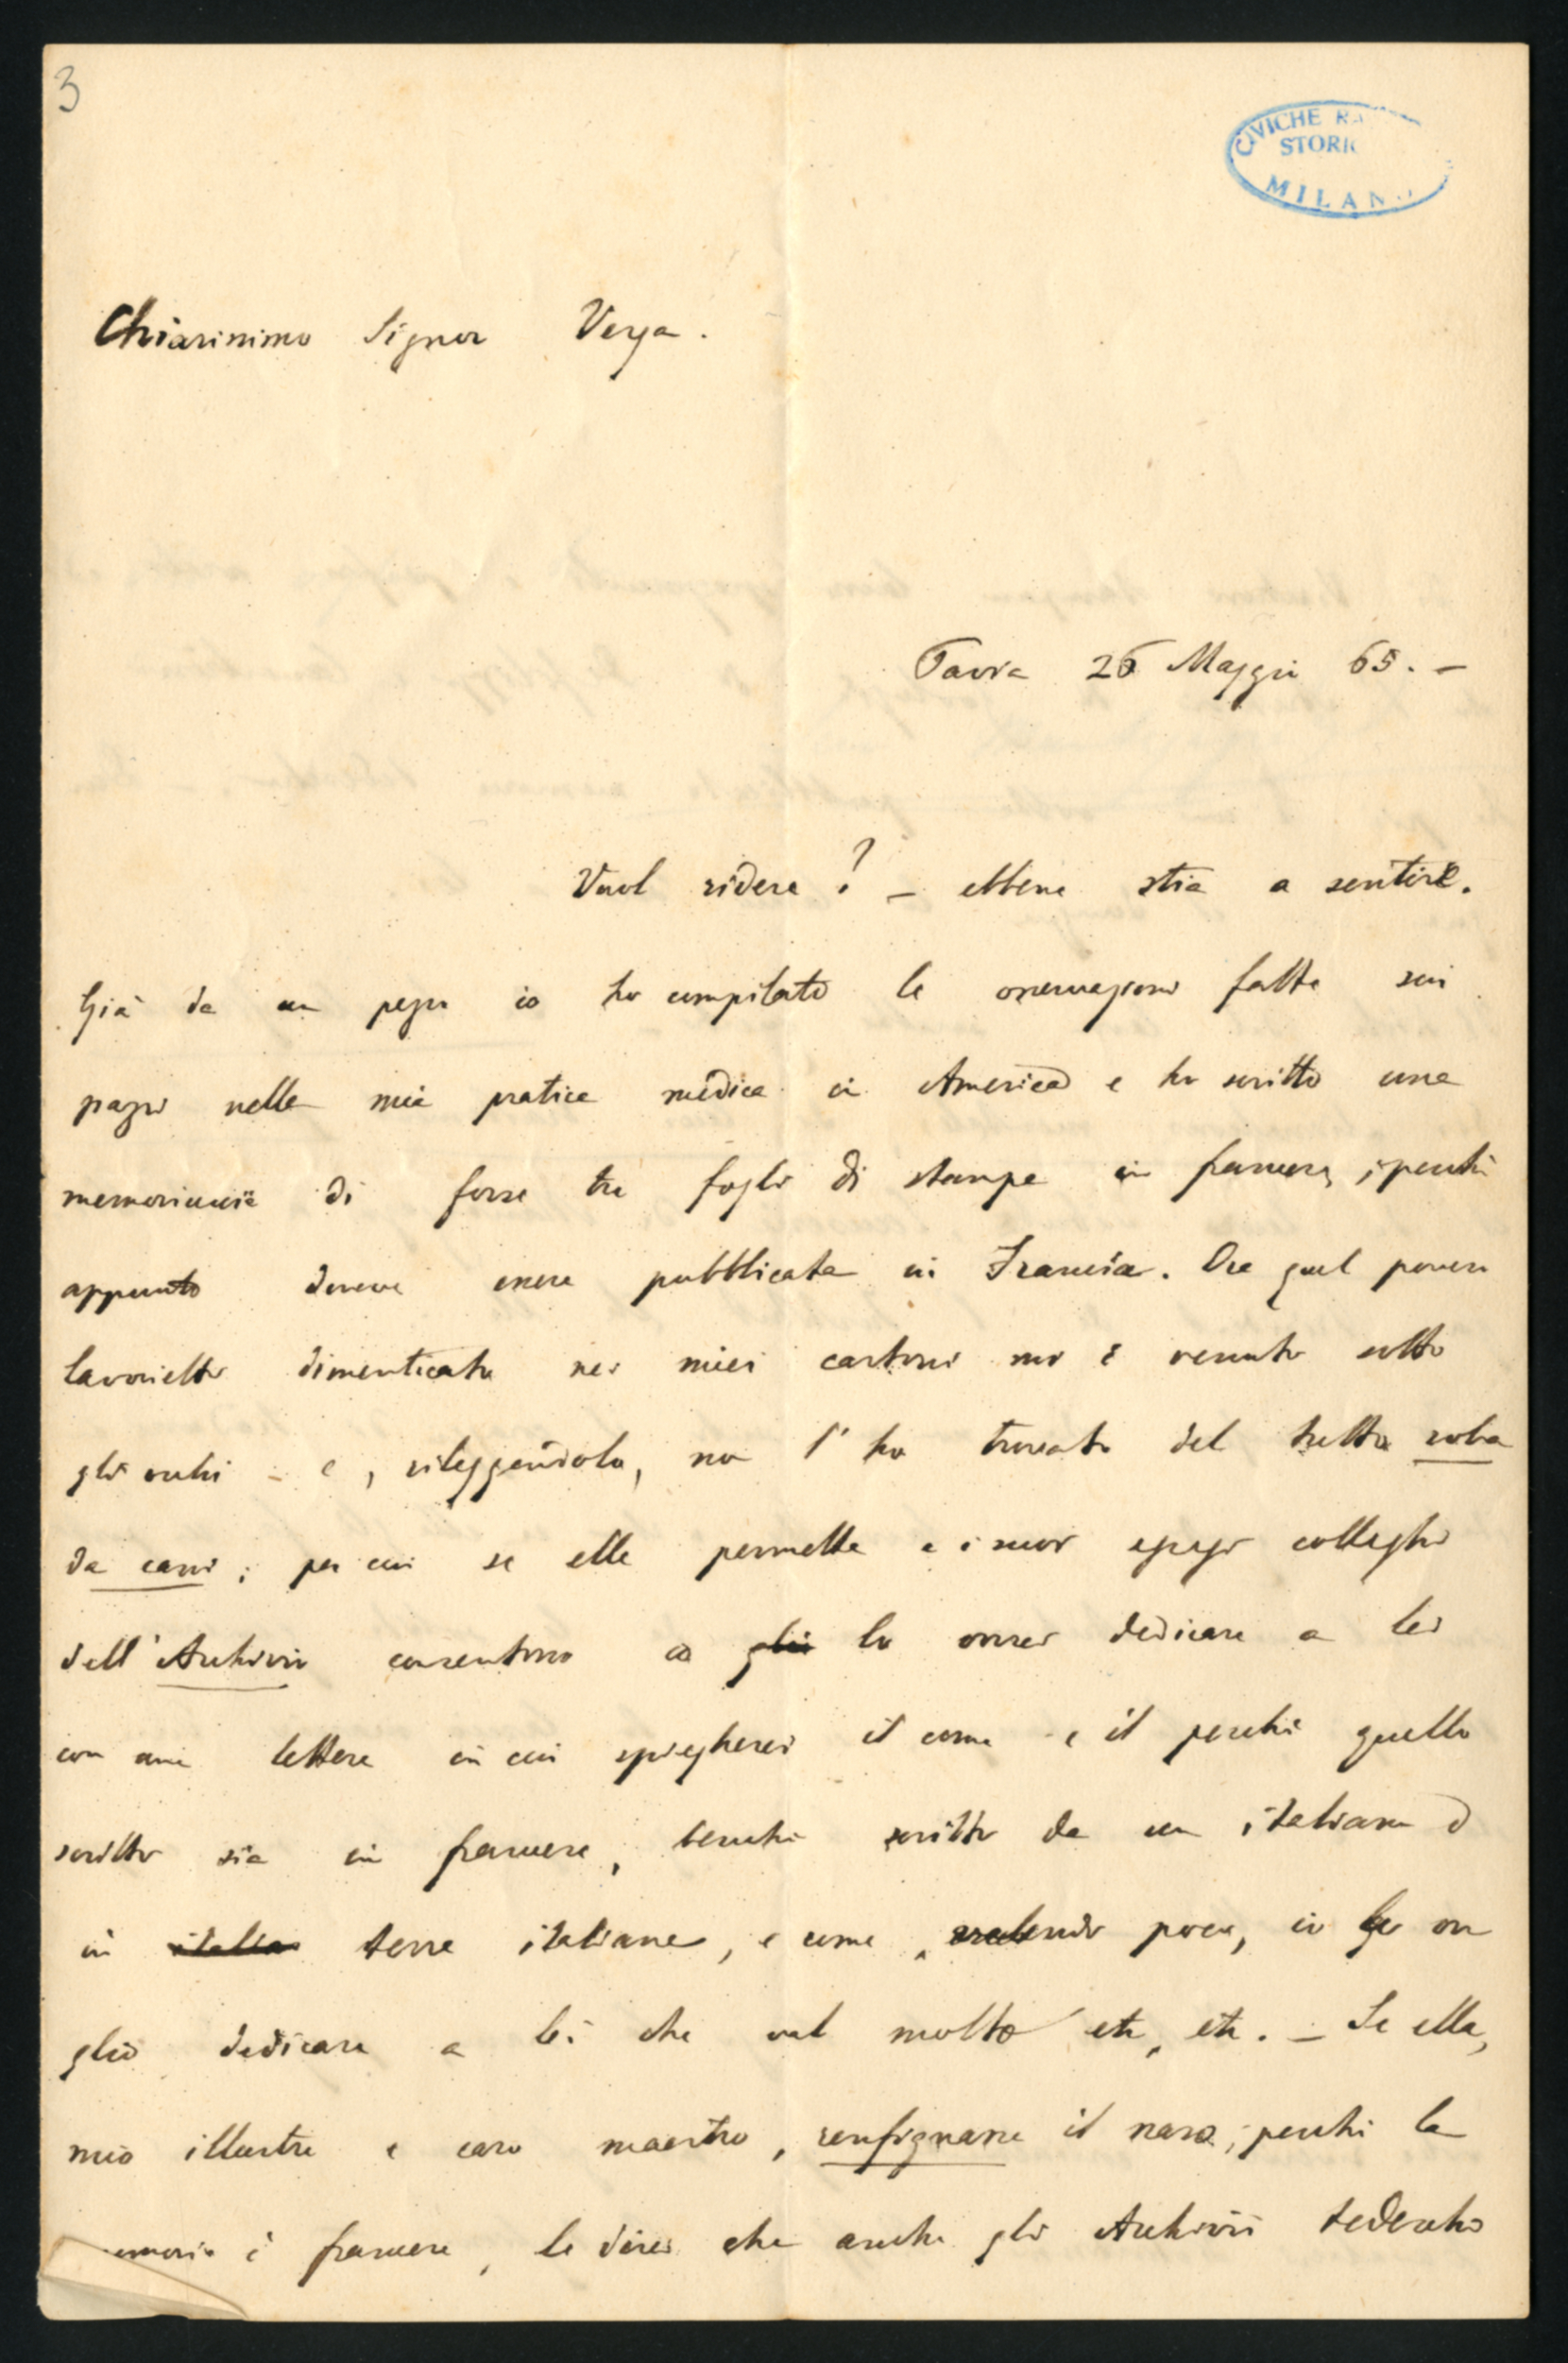 3
CIVICHE RA
STORIC
MILANO
Chiarissimo Signor Verga.
Pavia 26 Maggio 65. —
Vuol ridere? — ebbene stia a sentire.
Già da un pezzo io ho compilato le osservazioni fatte sui
pazzi nella mia pratica medica in America e ho scritto una
memoriuccia di forse tre fogli di stampa in francese, perchè
appunto doveva essere pubblicata in Francia. Ora quel povero
lavorietto dimenticato nei miei cartoni mi è venuto sotto
gli occhi — e, rileggendolo, non l'ho trovato del tutto roba
da cani; per cui se ella permette e i suoi egregi colleghi
dell'Archivio consentono io glie lo vorrei dedicare a lei
con una lettera in cui spiegherei il come e il perchè quello
scritto sia in francese, benchè scritto da un italiano e
in italia terra italiana, e come, valendo poco, io lo vo
glio dedicare a lei che val molto etc, etc. — Se ella,
mio illustre e caro maestro, rinfignasse il naso, perchè la
memoria è francese, le direi che anche gli Archivii tedeschi